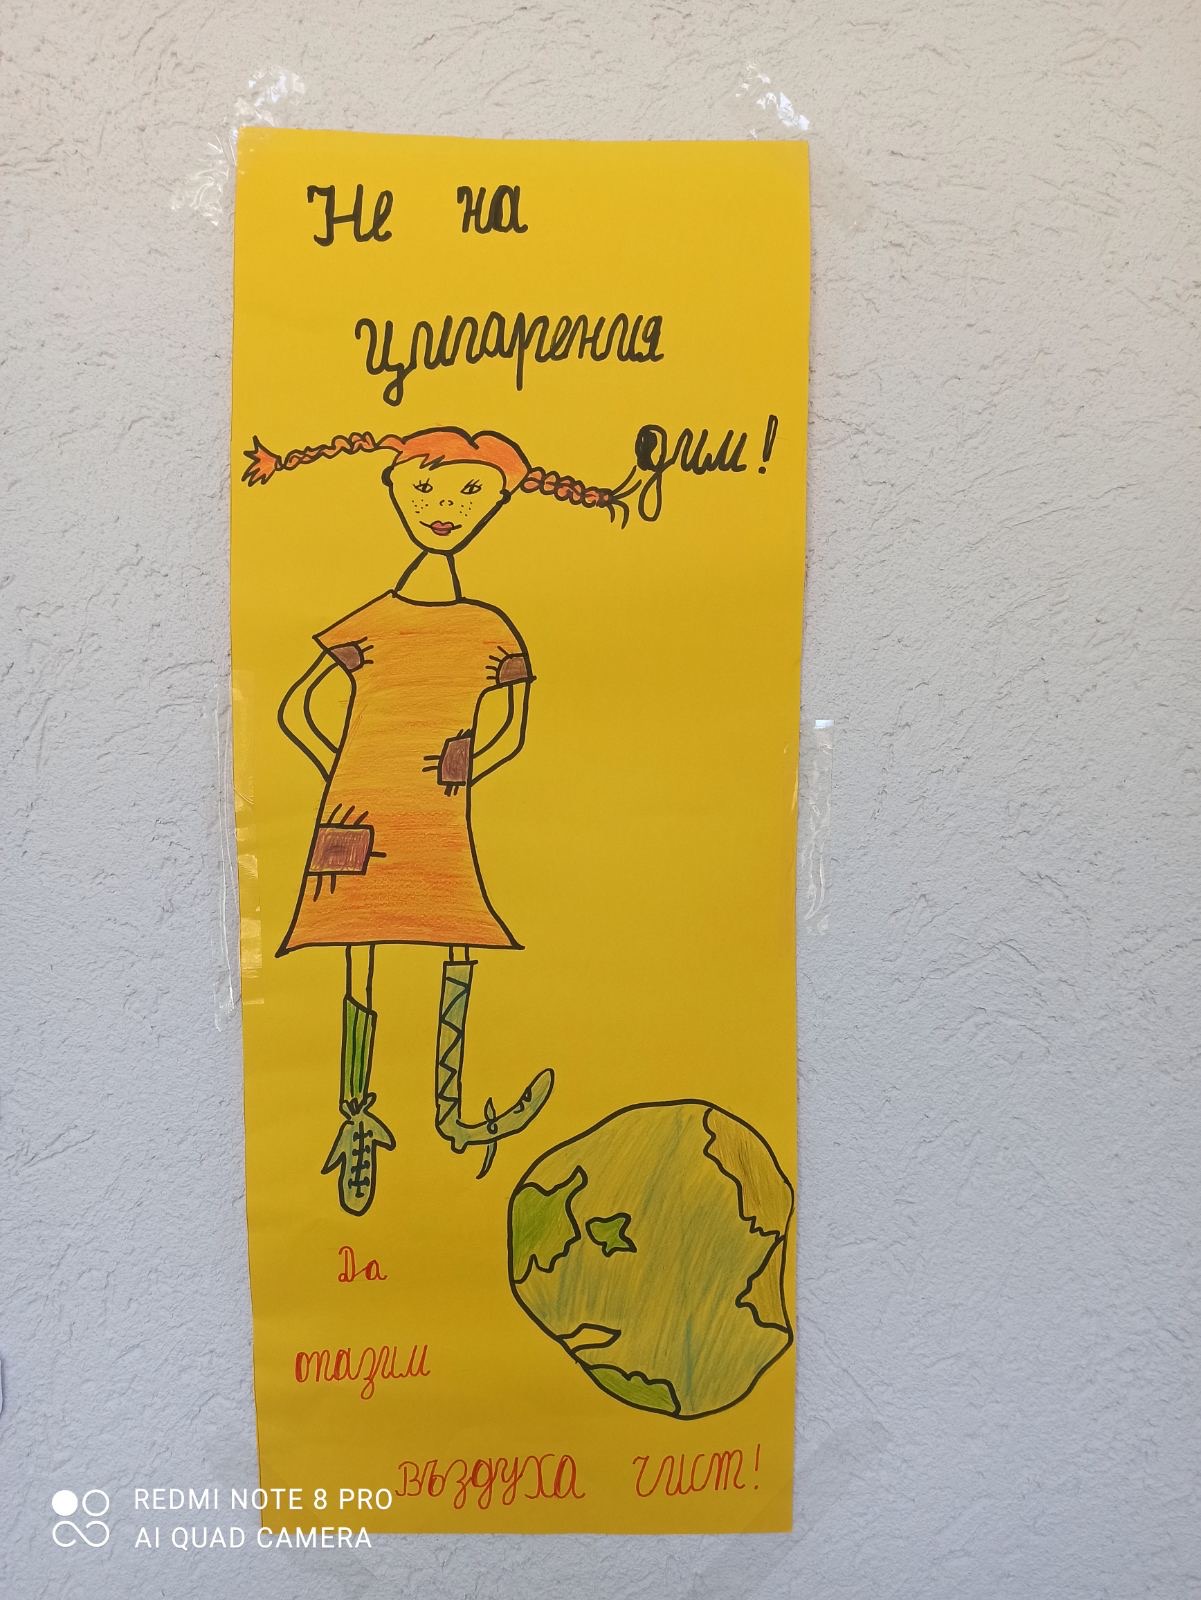 Не на
цигарения
дим!
Да
опазим
въздуха чист!
REDMI NOTE 8 PRO
AI QUAD CAMERA